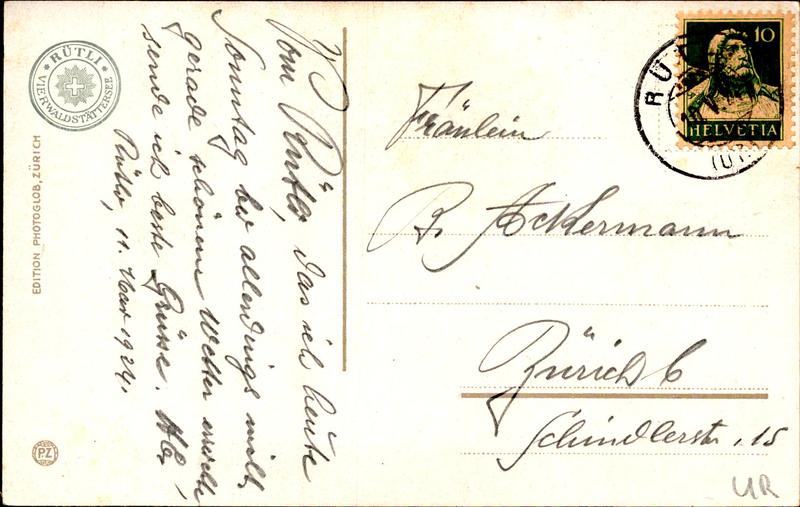 Vom Rütli, das ich heute
Sonntag bei allerdings nicht
gerade schönem Wetter erreicht,
sende ich beste Grüsse.
Rütli, 11. Mai 1924.
Fräulein
B. Ackermann
Zürich 6
Schindlerstr. 15
RÜTLI
VIERWALDSTÄTTERSEE
EDITION PHOTOGLOB, ZÜRICH
PZ
10
HELVETIA
(URI)
UR